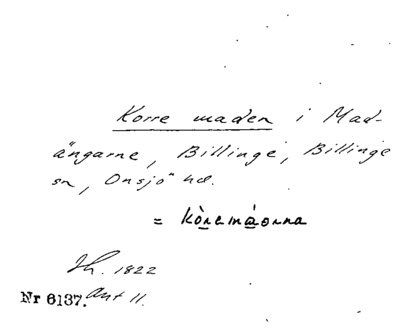 Korre maden i Mad-
ängarne, Billinge, Billinge
sn, Onsjö hd.
= kòremàorna
Jh. 1822
Nr 6137. Ant 11.